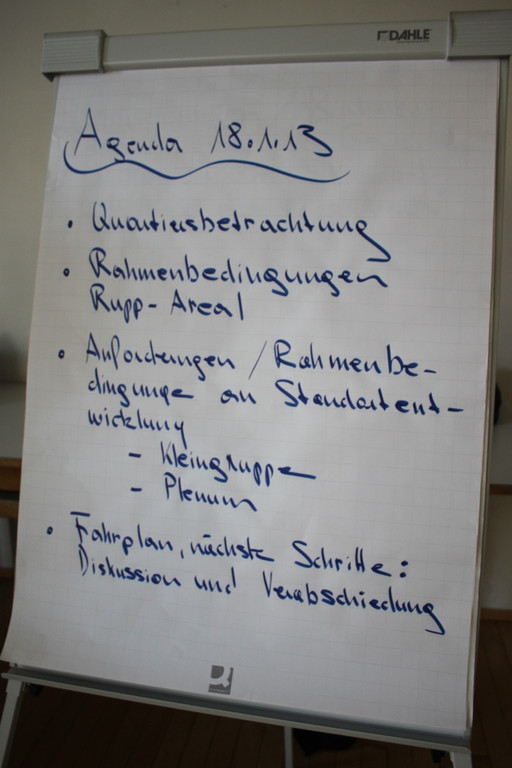 DAHLE
Agenda 18.1.13
• Quartiersbetrachtung
• Rahmenbedingungen
Rupp-Areal
• Anforderungen / Rahmenbe-
dingunge an Standortent-
wicklung
- Kleingruppe
- Plenum
• Fahrplan, nächste Schritte:
Diskussion und Verabschiedung